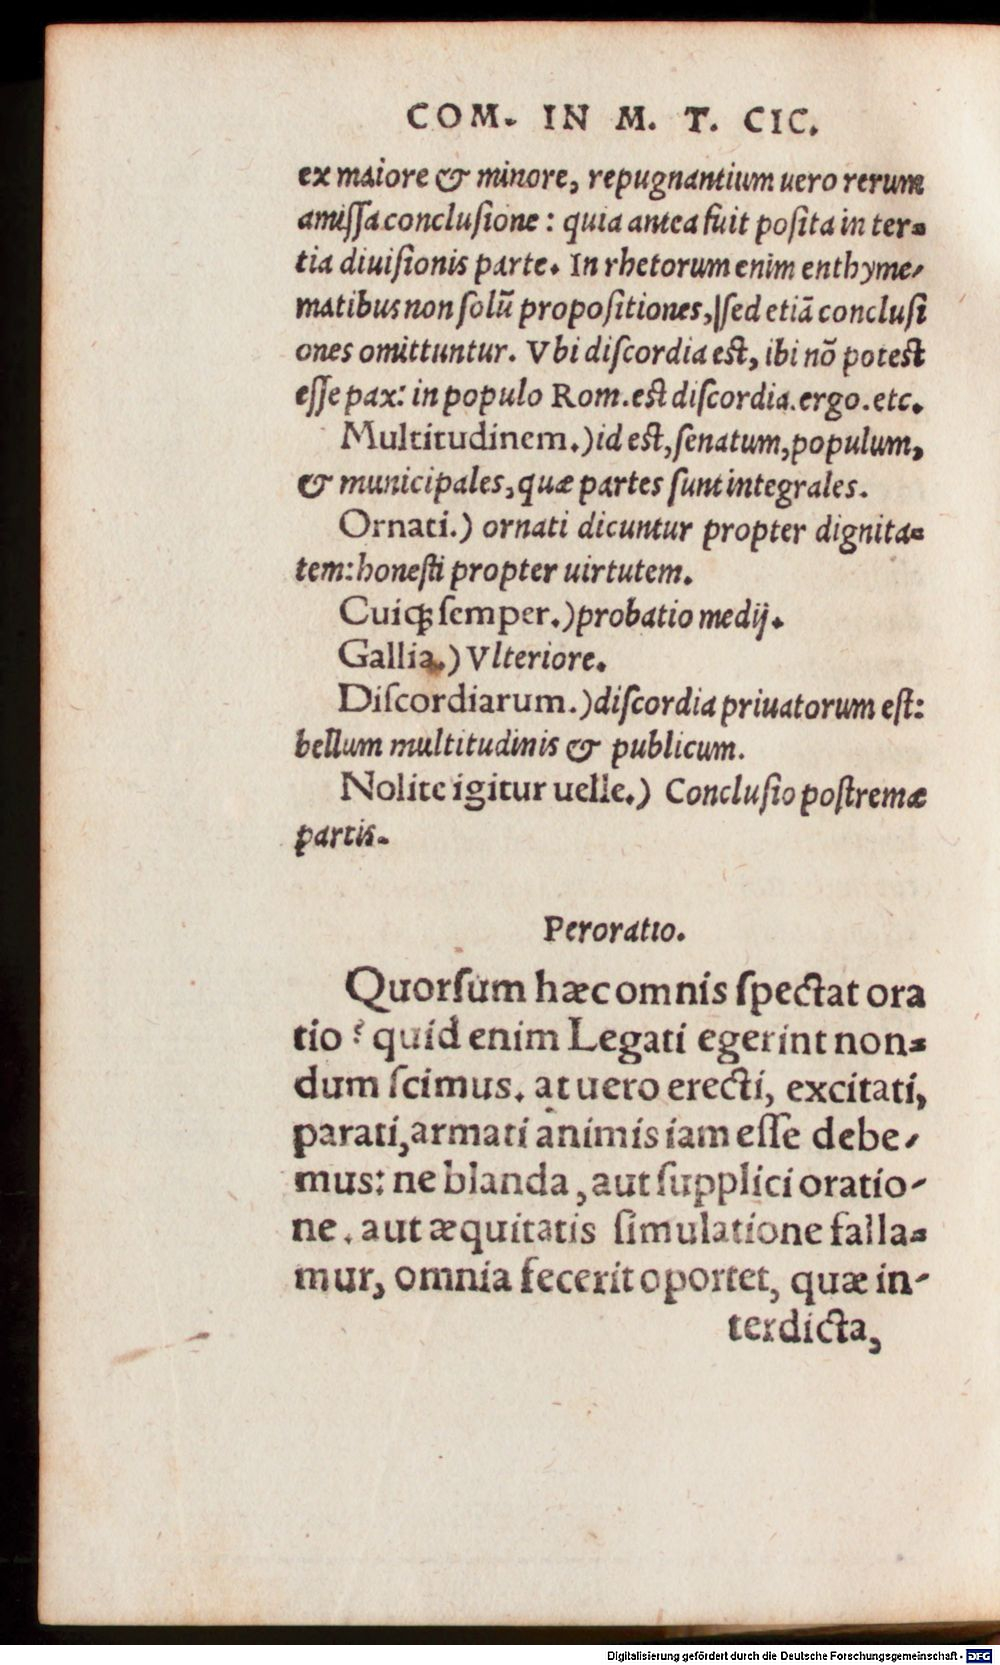 COM. IN M. T. CIC.
ex maiore & minore, repugnantium uero rerum
amiſſa concluſione : quia antea fuit poſita in ter-
tia diuiſionis parte. In rhetorum enim enthyme-
matibus non ſolũ propoſitiones, ſed etiã concluſi
ones omittuntur. Vbi diſcordia eſt, ibi nõ poteſt
eſſe pax: in populo Rom.eſt diſcordia.ergo.etc.
Multitudinem.) id eſt, ſenatum, populum,
& municipales, quæ partes ſunt integrales.
Ornati.) ornati dicuntur propter dignita-
tem: honeſti propter uirtutem.
Cuiqꝫ ſemper.) probatio medij.
Gallia.) Vlteriore.
Diſcordiarum.) diſcordia priuatorum eſt:
bellum multitudinis & publicum.
Nolite igitur uelle.) Concluſio poſtremæ
partis.
Peroratio.
Quorſum hæc omnis ſpectat ora
tio? quid enim Legati egerint non-
dum ſcimus. at uero erecti, excitati,
parati, armati animis iam eſſe debe-
mus: ne blanda, aut ſupplici oratio-
ne . aut æquitatis ſimulatione falla-
mur, omnia fecerit oportet, quæ in-
terdicta,
Digitalisierung gefördert durch die Deutsche Forschungsgemeinschaft - DFG